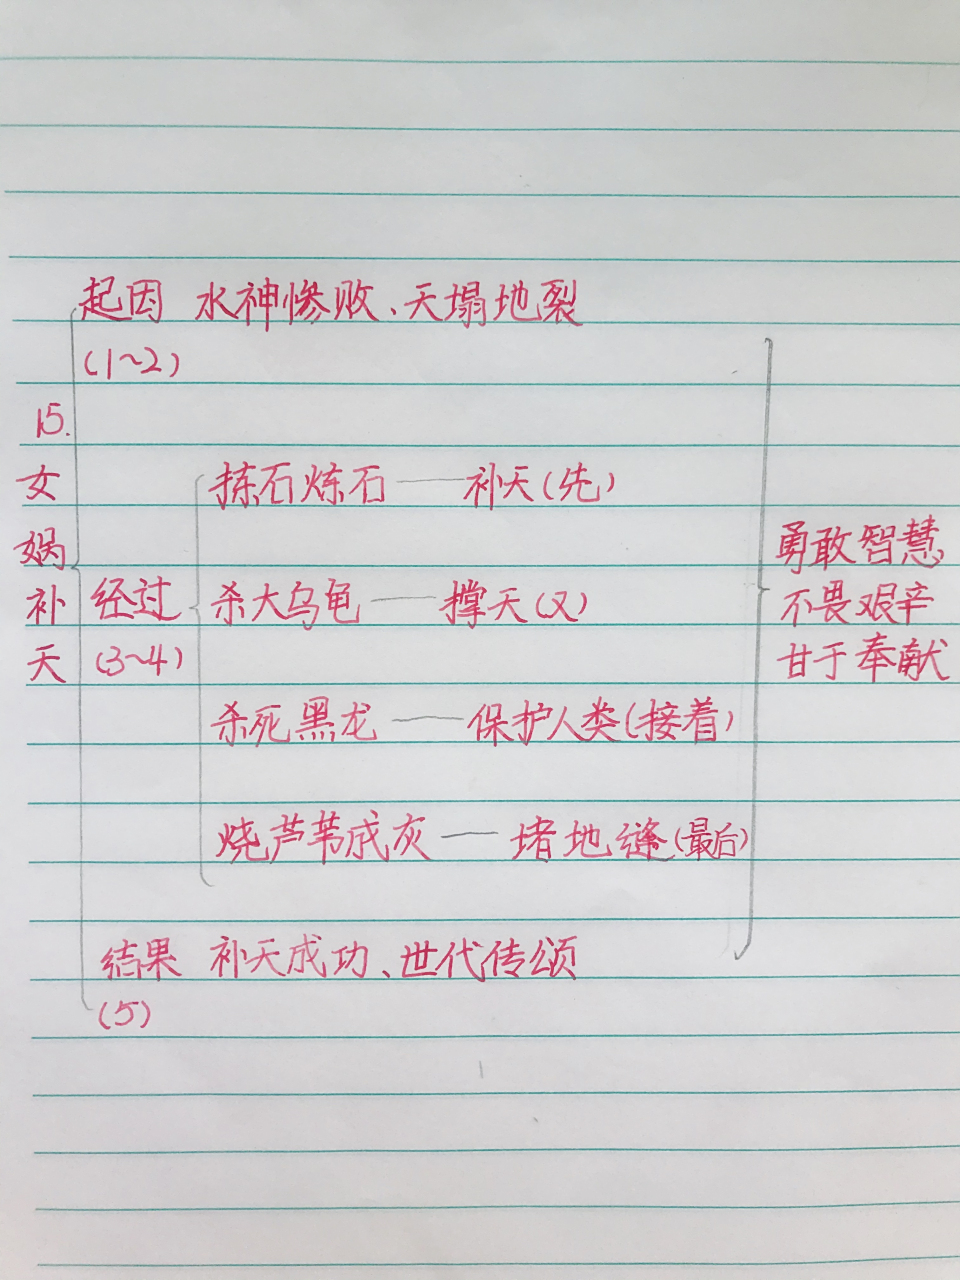 15.
女
娲
补
天
起因 水神惨败、天塌地裂
(1~2)
经过
(3~4)
拣石炼石——补天(先)
杀大乌龟——撑天(又)
杀死黑龙——保护人类(接着)
烧芦苇成灰——堵地缝(最后)
结果 补天成功、世代传颂
(5)
勇敢智慧
不畏艰辛
甘于奉献